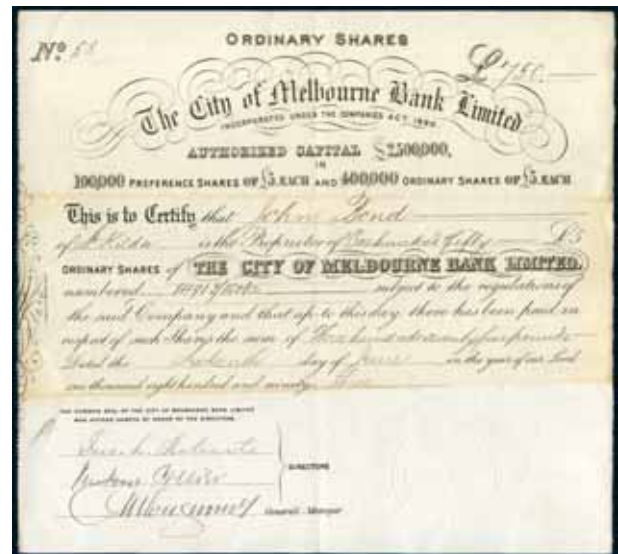 ORDINARY SHARES
No 58
£750
The City of Melbourne Bank Limited
INCORPORATED UNDER THE COMPANIES ACT, 1890.
AUTHORIZED CAPITAL £2,500,000,
IN
100,000 PREFERENCE SHARES OF £5. EACH AND 400,000 ORDINARY SHARES OF £5. EACH
This is to Certify that John Bond
of St Kilda is the Proprietor of One hundred & Fifty £5
ORDINARY SHARES of THE CITY OF MELBOURNE BANK LIMITED.
numbered subject to the regulations of
the said Company and that up to this day there has been paid in
respect of such Shares the sum of Three hundred & seventy five pounds
Dated the day of June in the year of our Lord
one thousand eight hundred and ninety
THE COMMON SEAL OF THE CITY OF MELBOURNE BANK LIMITED
WAS AFFIXED HERETO BY ORDER OF THE DIRECTORS.
DIRECTORS
General Manager